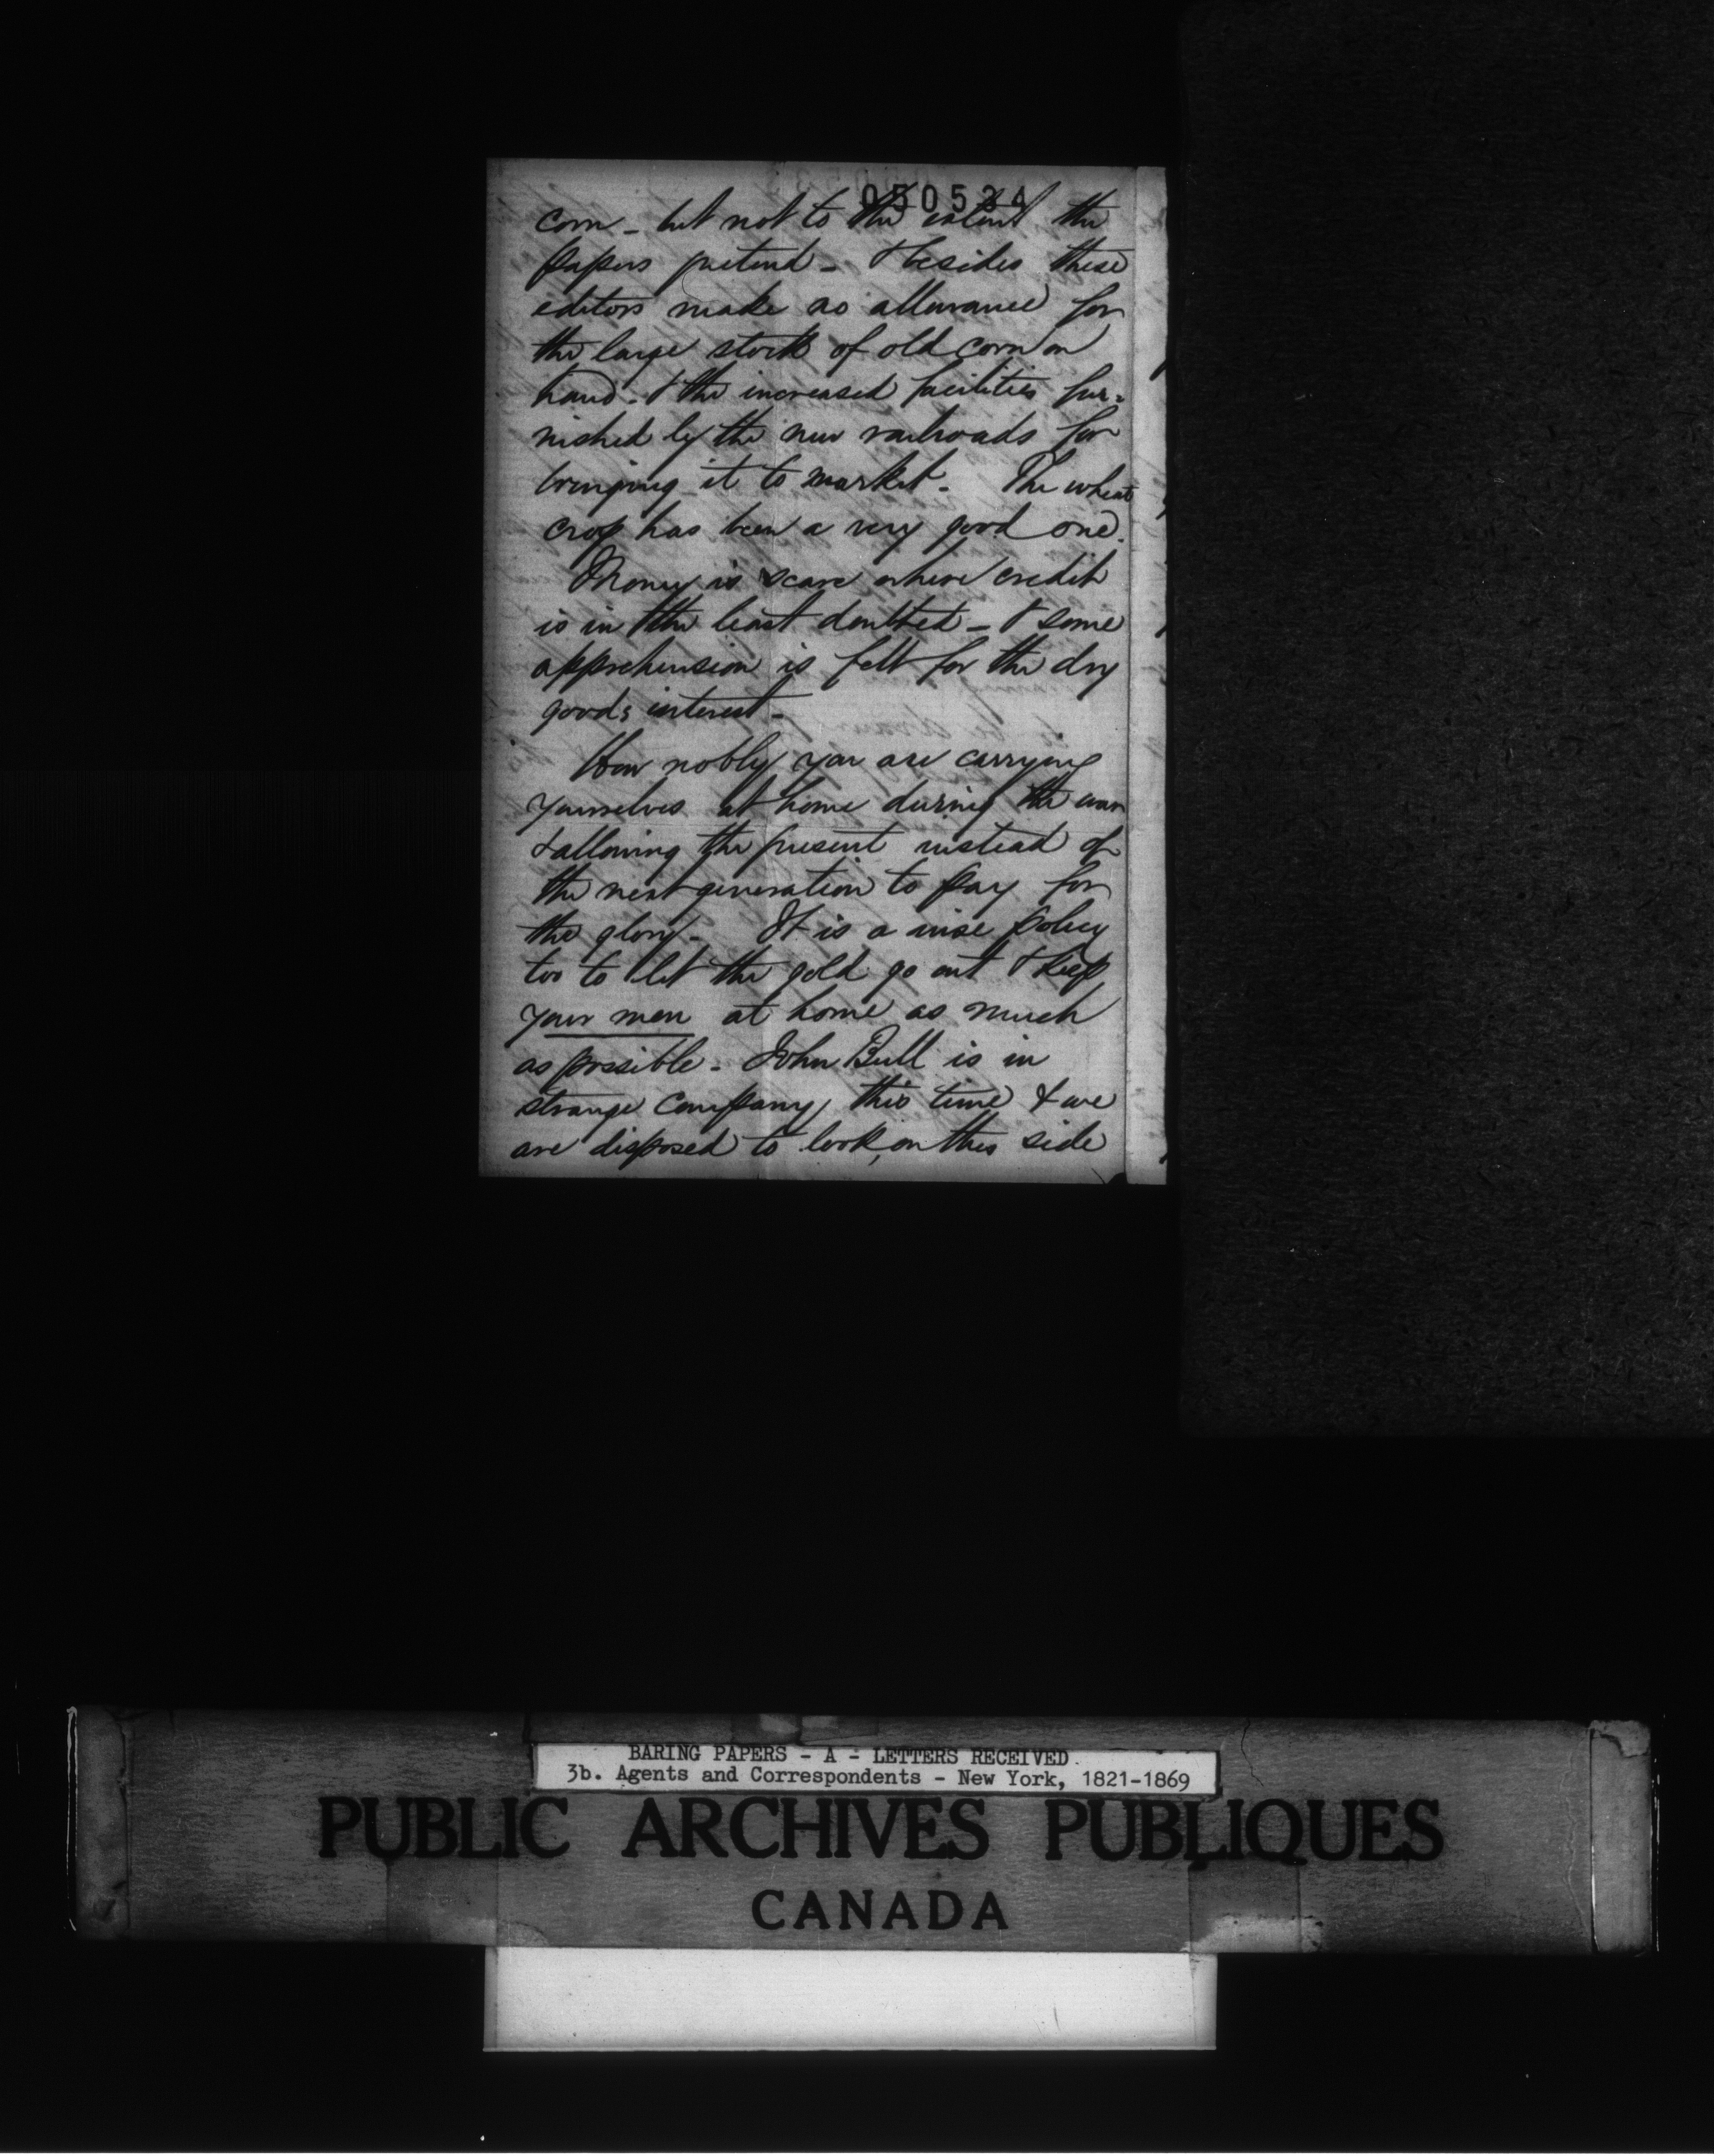 050534
corn - but not to the extent the
papers pretend - & besides these
editors make no allowance for
the large stock of old corn on
hand - & the increased facilities fur=
nished by the new railroads for
bringing it to market. The wheat
crop has been a very good one.
Money is scarce where credit
is in the least doubted - & some
apprehension is felt for the dry
goods interest -
How nobly you are carrying
yourselves at home during the war
& allowing the present instead of
the next generation to pay for
the glory - It is a wise policy
too to let the gold go out & keep
your men at home as much
as possible - John Bull is in
strange company this time & we
are disposed to look on this side
BARING PAPERS - A - LETTERS RECEIVED.
3b. Agents and Correspondents - New York, 1821-1869
PUBLIC ARCHIVES PUBLIQUES
CANADA